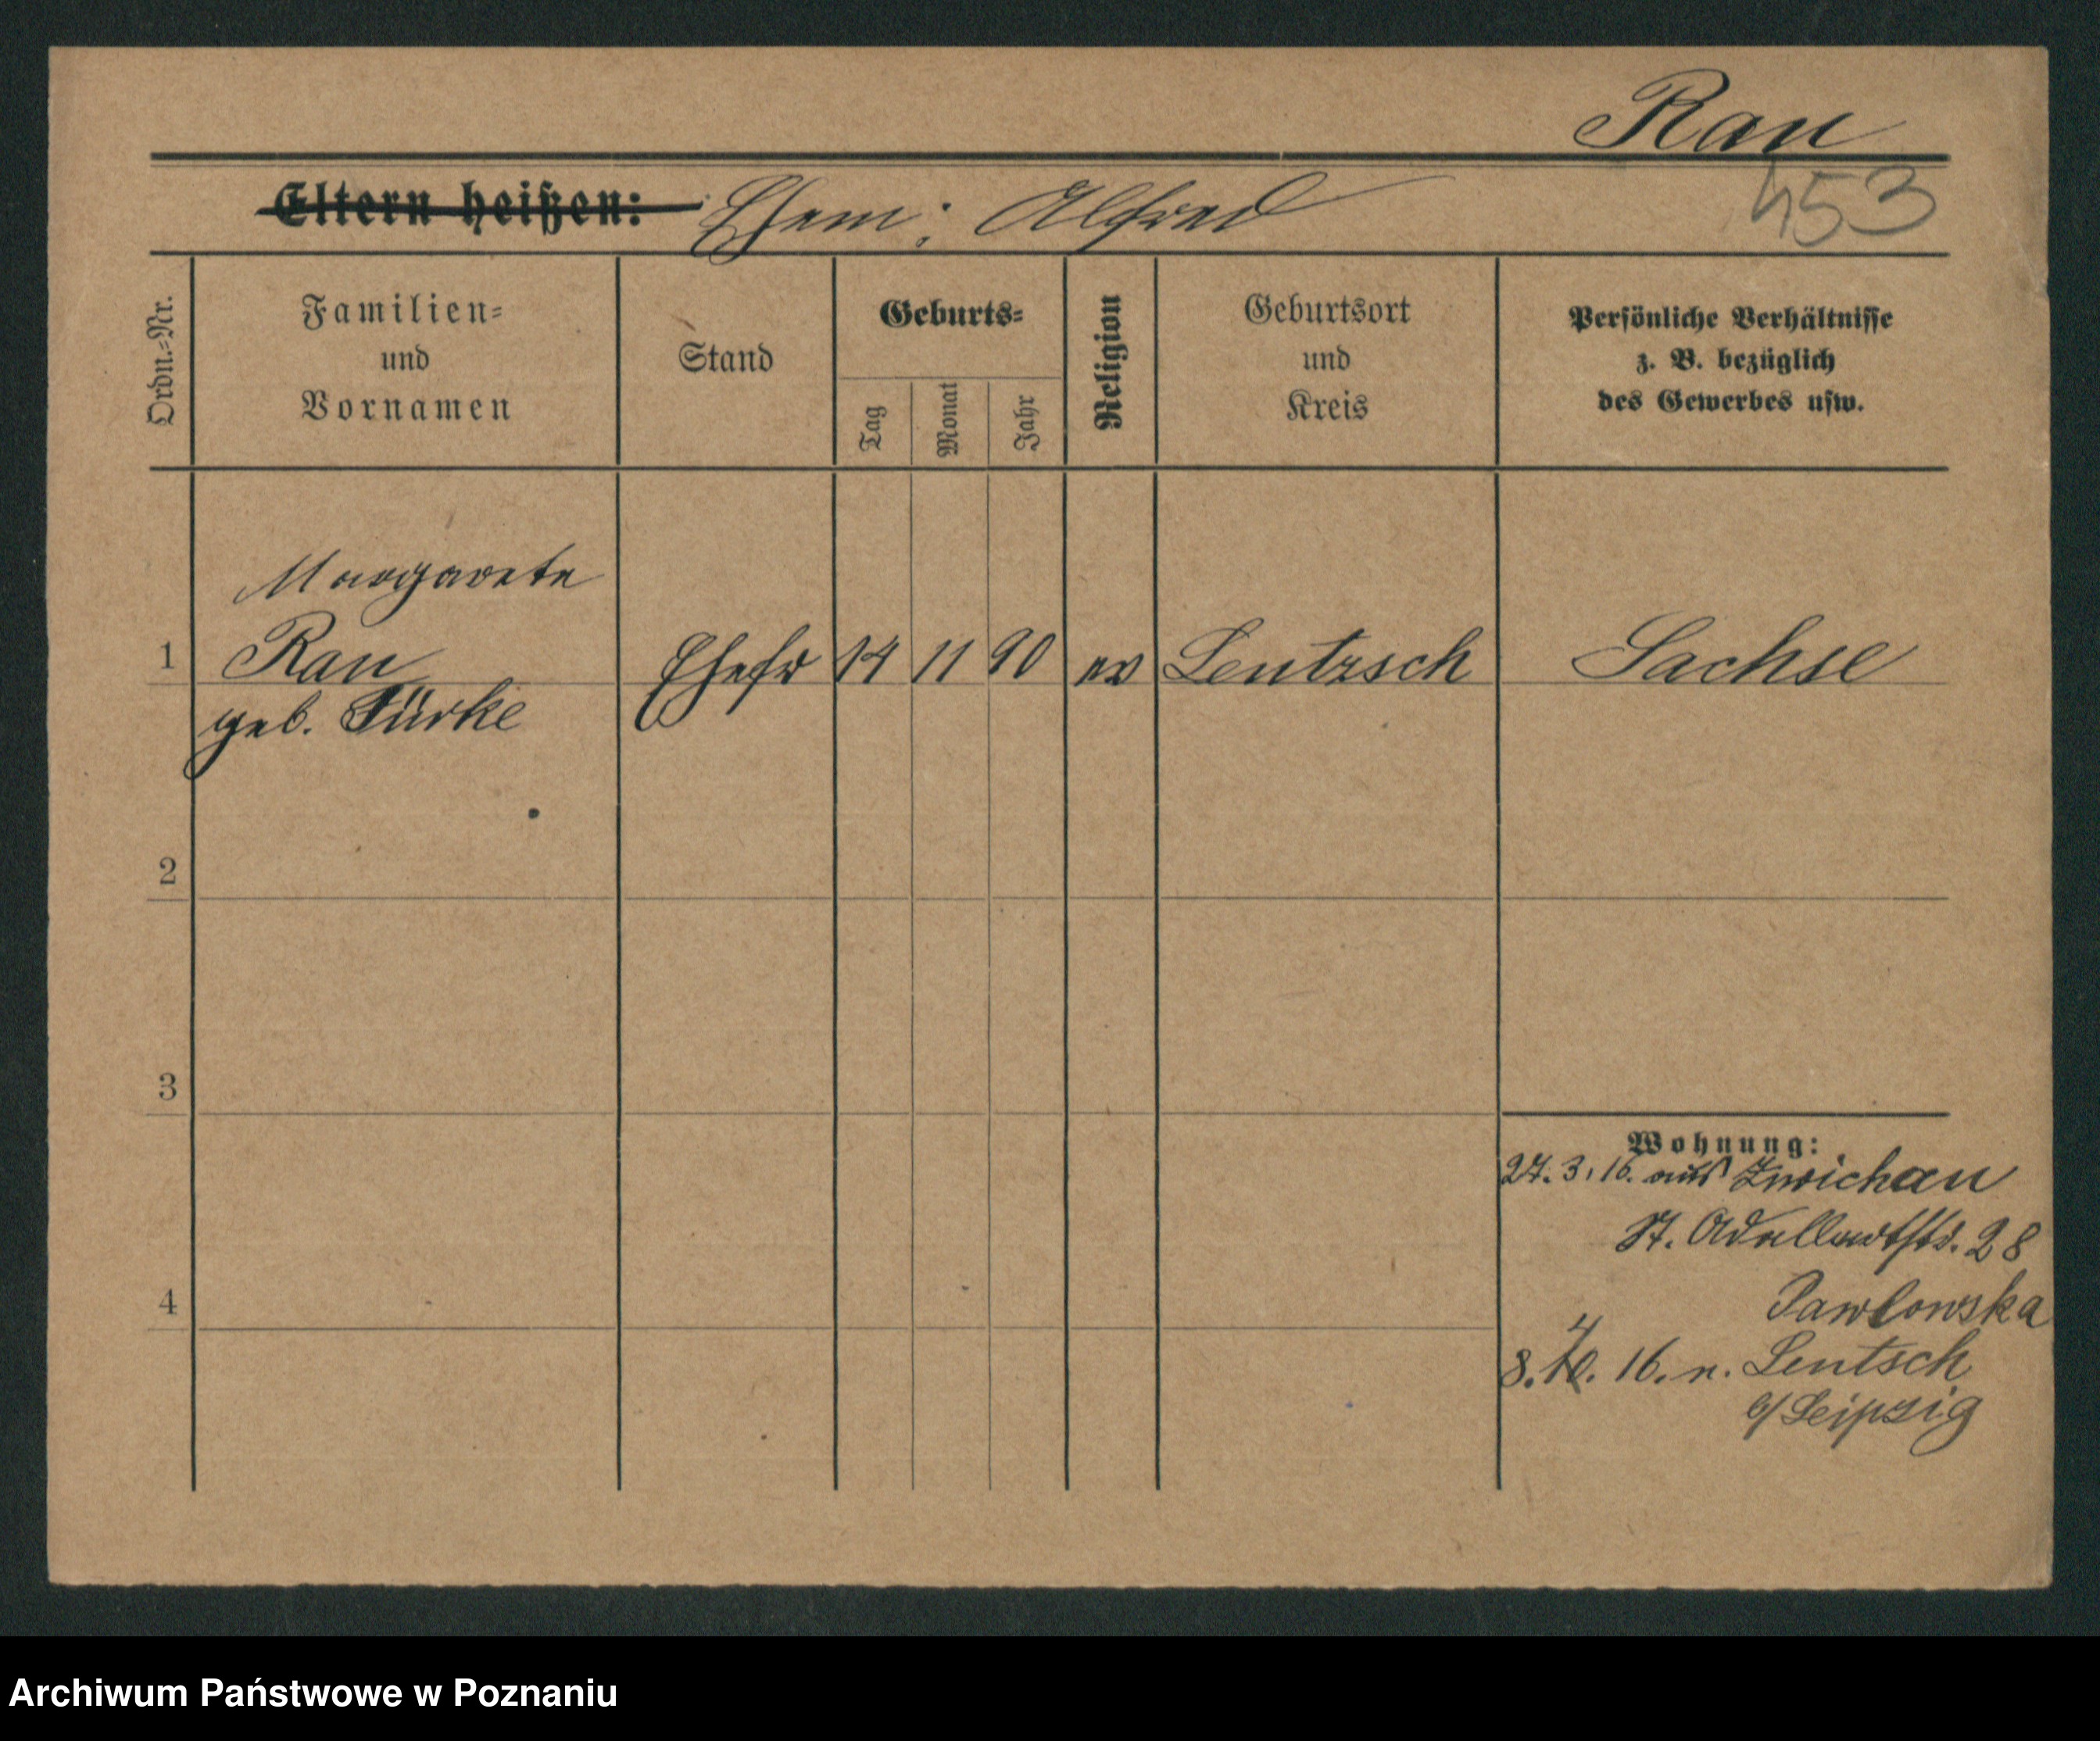 Rau
453
Eltern heißen: Ehem: Alfred
Ordn.-Nr.
Familien-
und
Vornamen
Stand
Geburts-
Tag
Monat
Jahr
Religion
Geburtsort
und
Kreis
Persönliche Verhältnisse
z. B. bezüglich
des Gewerbes usw.
Margarete
1 Rau Ehefr 14 11 90 ev Lentzsch Sachse
geb. Türke
2
3
4
Wohnung:
27. 3. 16. aus Zwickau
St. Adalbertstr. 28
Pawlowska
8. 4. 16. n. Lentsch
b/Leipzig
Archiwum Państwowe w Poznaniu